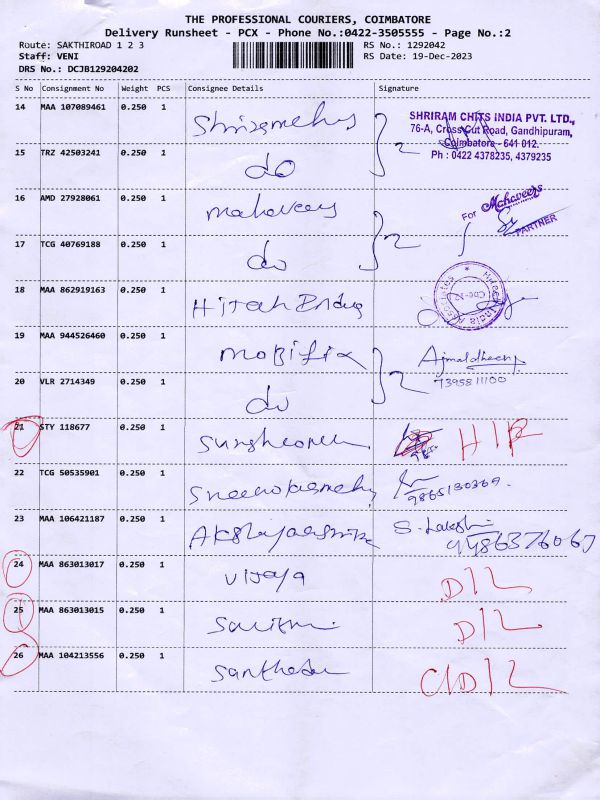 THE PROFESSIONAL COURIERS, COIMBATORE
Delivery Runsheet - PCX - Phone No.:0422-3505555 - Page No.:2
Route: SAKTHIROAD 1 2 3 RS No.: 1292042
Staff: VENI RS Date: 19-Dec-2023
DRS No.: DCJB129204202
S No Consignment No Weight PCS Consignee Details Signature
14 MAA 107089461 0.250 1 2
SHRIRAM CHITS INDIA PVT. LTD.,
76-A, Cross Cut Road, Gandhipuram,
Coimbatore - 641 012.
Ph : 0422 4378235, 4379235
15 TRZ 42503241 0.250 1 do
16 AMD 27928061 0.250 1 mahaveers 2
For Mahaveers
PARTNER
17 TCG 40769188 0.250 1 do
18 MAA 862919163 0.250 1
19 MAA 944526460 0.250 1 mobifix 2 Ajmaldheen
7395811100
20 VLR 2714349 0.250 1 do
21 STY 118677 0.250 1
22 TCG 50535901 0.250 1 9865130369.
23 MAA 106421187 0.250 1 S. Lakshmi
9486376067
24 MAA 863013017 0.250 1 vijaya D/L
25 MAA 863013015 0.250 1 D/L
26 MAA 104213556 0.250 1 C/D/L